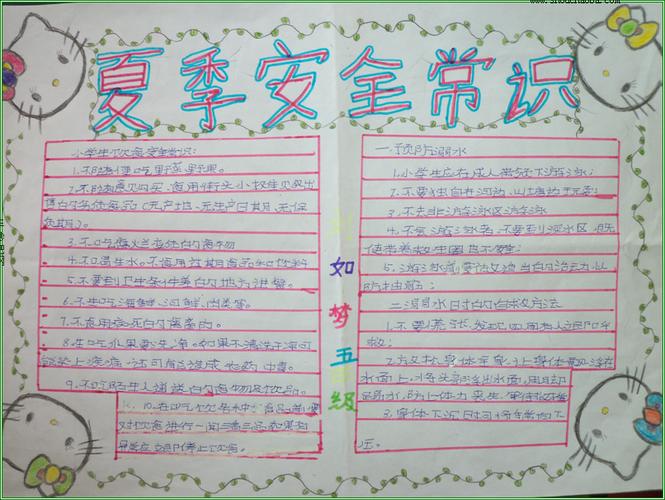 夏季安全常识
小学生饮食安全常识:
1.不随便吃野菜野果。
2.不随意购买、食用街头小摊贩出
售的劣质食品(无产地、无生产日期、无保
质期)。
3.不吃腐烂变质的食物
4.不喝生水。不食用过期食品和饮料
5.不要到卫生条件差的地方进餐。
6.不生吃海鲜、河鲜、肉类等。
7.不食用病死的禽畜肉。
8.生吃水果要洗净。如果不清洗干净可
能染上疾病,还可能造成农药中毒。
9.不吃陌生人送的食物及饮品。
10.在吃饮
对饮食进行一闻二看三品,如果有
异味应立即停止饮食。
如
梦
五
级
一.预防溺水
1.小学生应在成人带领下游泳;
2.不要独自在河边、山塘边玩耍;
3.不去非游泳区游泳
4.不会游泳者,不要到深水区,即
使带着救生圈也不安全;
5.游泳前要做适当的活动,以
防抽筋;
二.溺水时的自救方法
1.不要慌张,发现周围有人立即呼
救;
2.放松身体
水面上,将头部浮出水面,用脚
踢水,防止体力丧失,等待救援;
3.身体下沉时,可将手掌向下
压。